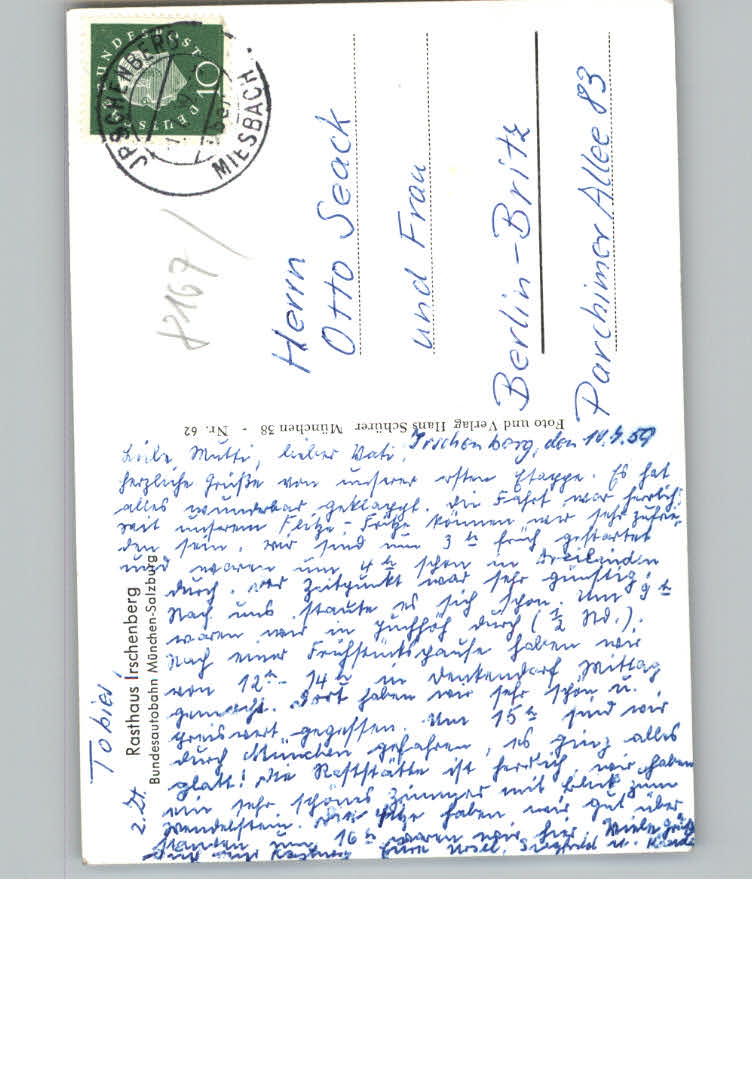 DEUTSCHE BUNDESPOST
10
IRSCHENBERG
MIESBACH
8167
Herrn
Otto Seack
und Frau
Berlin-Britz
Parchimer Allee 83
Foto und Verlag Hans Schürer München 38 - Nr. 62
Rasthaus Irschenberg
Bundesautobahn München-Salzburg
Irschenberg, den 10.7.59
Liebe Mutti, lieber Vati,
herzliche Grüße von unserer ersten Etappe. Es hat
alles wunderbar geklappt. Die Fahrt war herrlich.
mit unserem Flitze-Fritze können wir sehr zufrie-
den sein. Wir sind um 3 h früh gestartet
und waren um 4 h schon in Dreilinden
durch. Der Zeitpunkt war sehr günstig.
Nach uns staute es sich schon. Um 9 h
waren wir in Juchhöh durch (½ Std.).
Nach einer Frühstückspause haben wir
von 12 h - 14 h in Denkendorf Mittag
gemacht. Dort haben wir sehr schön u.
preiswert gegessen. Um 15 h sind wir
durch München gefahren, es ging alles
glatt! Die Raststätte ist herrlich, wir haben
ein sehr schönes Zimmer mit Blick zum
Wendelstein. Die Hitze haben wir gut über
standen um 16 h waren wir hier. Viele Grüße
Eure Ursel, Siegfried u.
2. Zt.